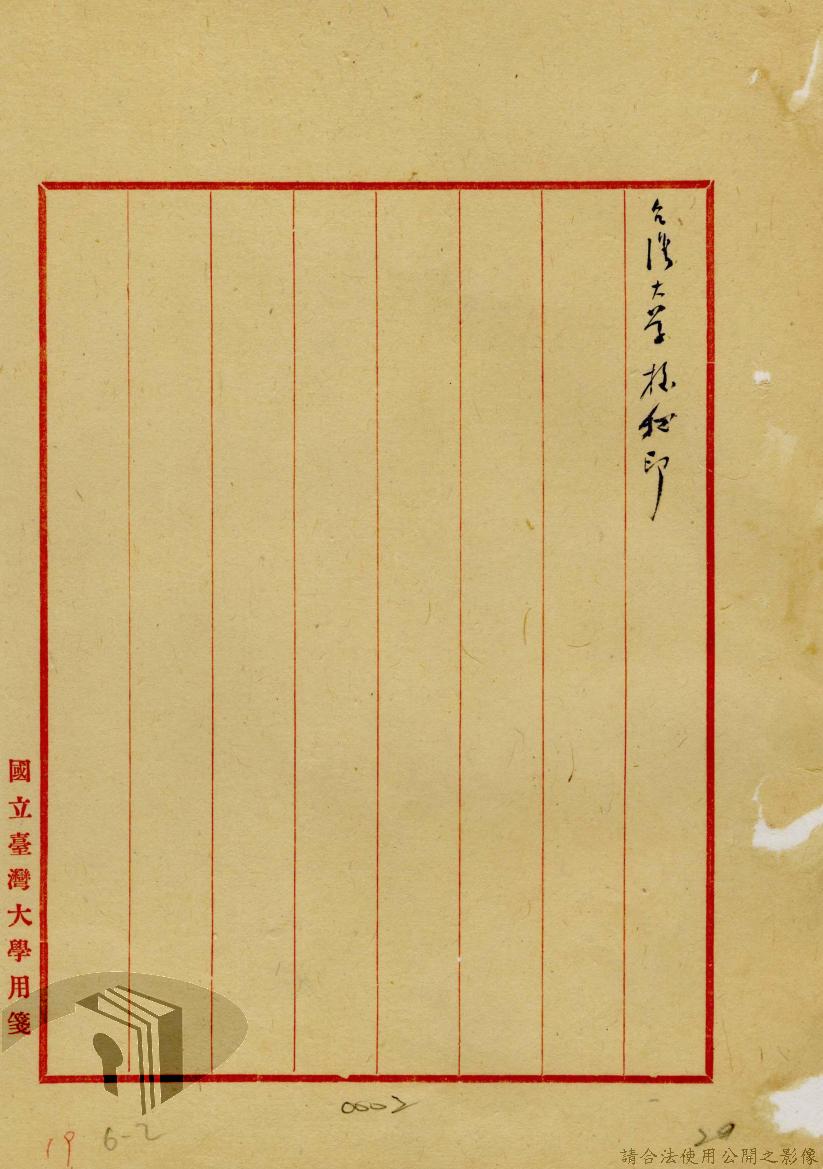 台湾大学校秘印
國立臺灣大學用箋
0002
19 6-2
29
請合法使用公開之影像